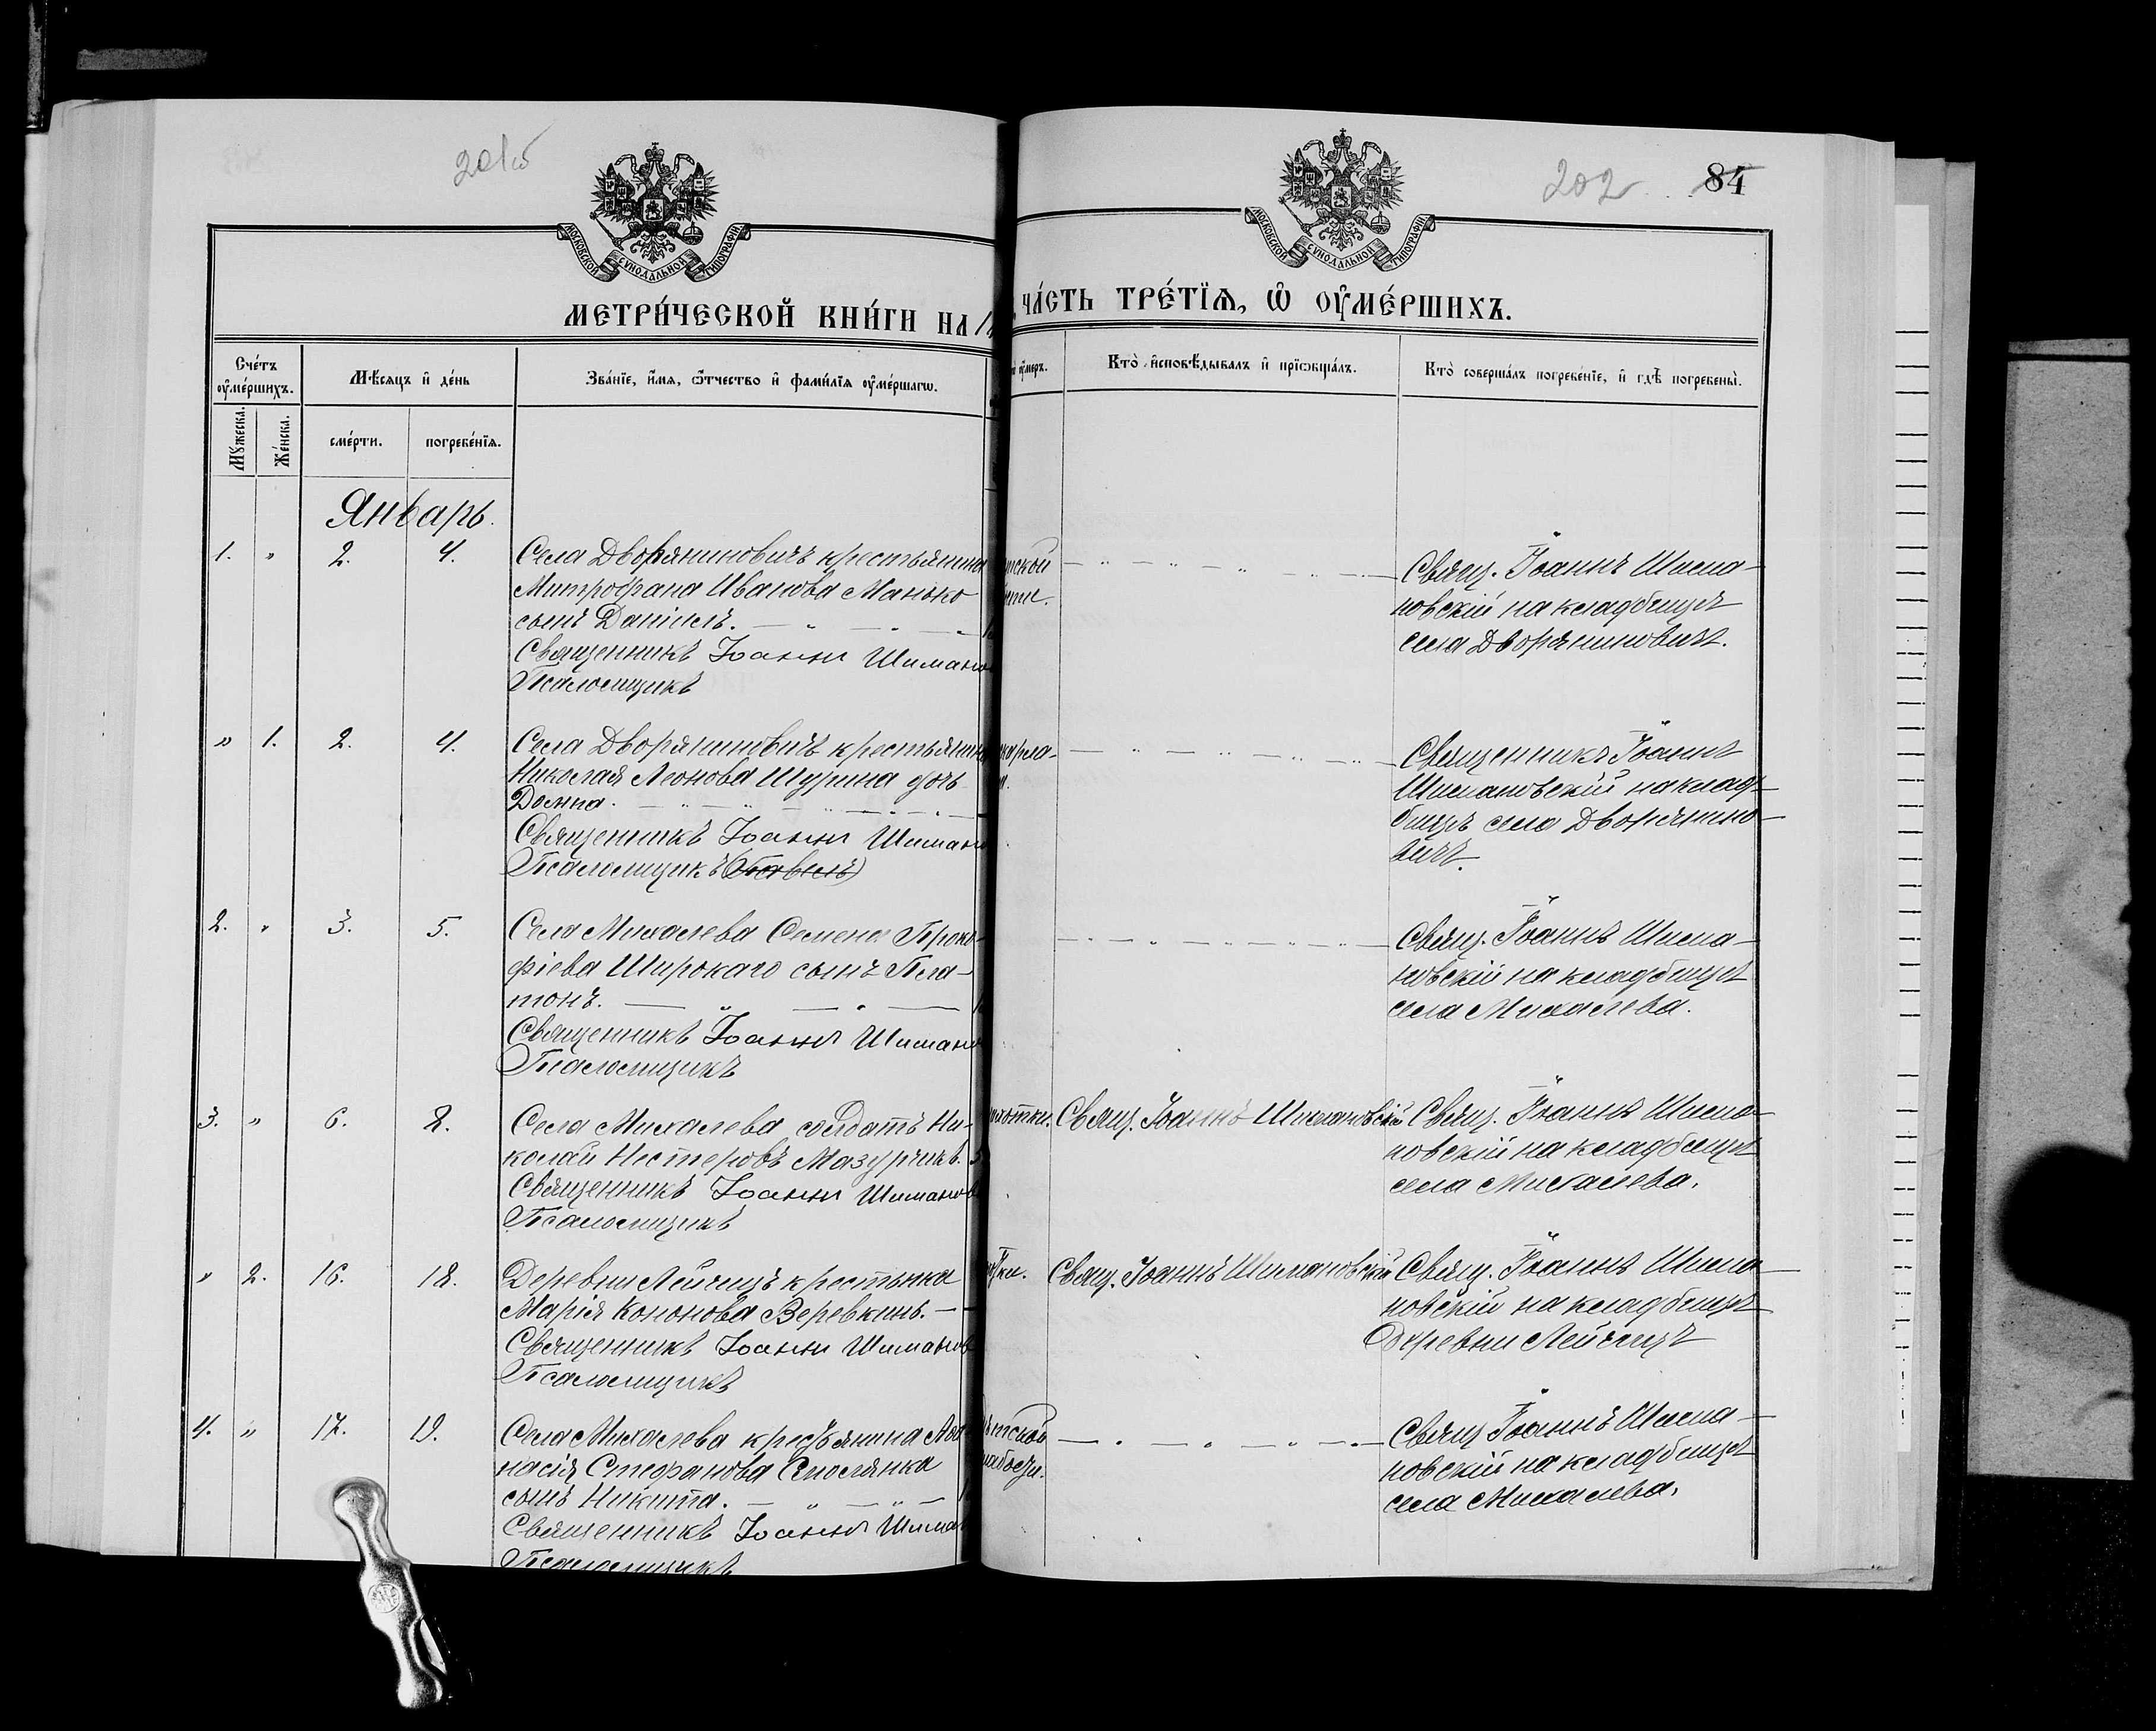 201об
202
84
МОСКОВСКОЙ СѴНОДАЛЬНОЙ ТИПОГРАФІИ
МОСКОВСКОЙ СѴНОДАЛЬНОЙ ТИПОГРАФІИ
МЕТРИ́ЧЕСКОЙ КНИ́ГИ НА
ЧА́СТЬ ТРЕ́ТЇѦ, Ѡ҆ ОУ҆МЕ́РШИХЪ.
Сче́тъ оу҆ме́ршихъ.
Мꙋ́жеска.
Же́нска.
Мѣ́сѧцъ и҆ де́нь
сме́рти.
погребе́нїѧ.
Зва́нїе, и҆́мѧ, ѻ҆́тчество и҆ фами́лїѧ оу҆ме́ршагѡ.
оу҆́меръ.
Кто̀ и҆сповѣ́дывалъ и҆ прїѻбща́лъ.
Кто̀ соверша́лъ погребе́нїе, и҆ гдѣ̀ погребены̀.
Январь.
1. " 2. 4. Села Дворяниновичъ крестьянина
Митрофана Иванова Манько
сынъ Даніилъ.
Священникъ Іоаннъ Шимано
Псаломщикъ
тской
Свящ. Іоаннъ Шима-
новскій на кладбищѣ
села Дворяниновичъ.
" 1. 2. 4. Села Дворяниновичъ крестьянина
Николая Леонова Шурина дочь
Домна.
Священникъ Іоаннъ Шиман
Псаломщикъ (Павелъ)
Священникъ Іоаннъ
Шимановскій на клад-
бищѣ села Дворянино-
вичъ.
2. " 3. 5. Села Михалева Семена Проко-
фіева Широкаго сынъ Пла-
тонъ.
Священникъ Іоаннъ Шиман
Псаломщикъ
Свящ. Іоаннъ Шима-
новскій на кладбищѣ
села Михалева.
3. " 6. 8. Села Михалева солдатъ Ни-
колай Нестеровъ Мазурчикъ.
Священникъ Іоаннъ Шиманов
Псаломщикъ
хотки. Свящ. Іоаннъ Шимановскій
Свящ. Іоаннъ Шима-
новскій на кладбищѣ
села Михалева.
" 2. 16. 18. Деревни Лейчицъ крестьянка
Марія Кононова Веревкинъ.
Священникъ Іоаннъ Шиманов
Псаломщикъ
Свящ. Іоаннъ Шимановскій
Свящ. Іоаннъ Шима-
новскій на кладбищѣ
деревни Лейчицъ
4. " 17. 19. Села Михалева крестьянина Афа-
насія Стефанова
сынъ Никита.
Священникъ Іоаннъ Шиман
Псаломщикъ
ѣтской
лабости.
Свящ. Іоаннъ Шима-
новскій на кладбищѣ
села Михалева.